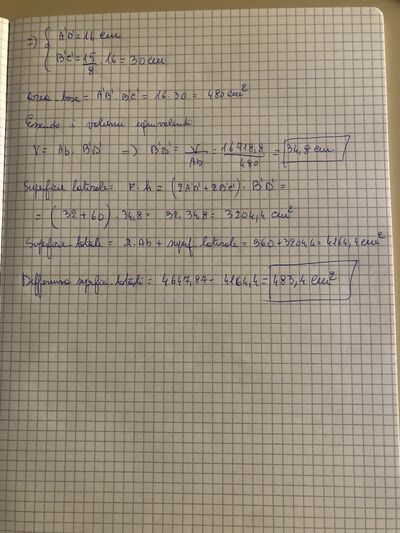 => { A'B' = 16 cm
B'C' = 15/8 · 16 = 30 cm
Area base = A'B' · B'C' = 16 · 30 = 480 cm²
Essendo i volumi equivalenti
V = Ab · B'D' => B'D' = V/Ab = 16718,8/480 = 34,8 cm
Superficie laterale = P · h = (2A'B' + 2B'C') · B'D' =
= (32 + 60) · 34,8 = 92 · 34,8 = 3204,4 cm²
Superficie totale = 2 · Ab + superf. laterale = 960 + 3204,4 = 4164,4 cm²
Differenza superfici totali = 4647,84 - 4164,4 = 483,4 cm²